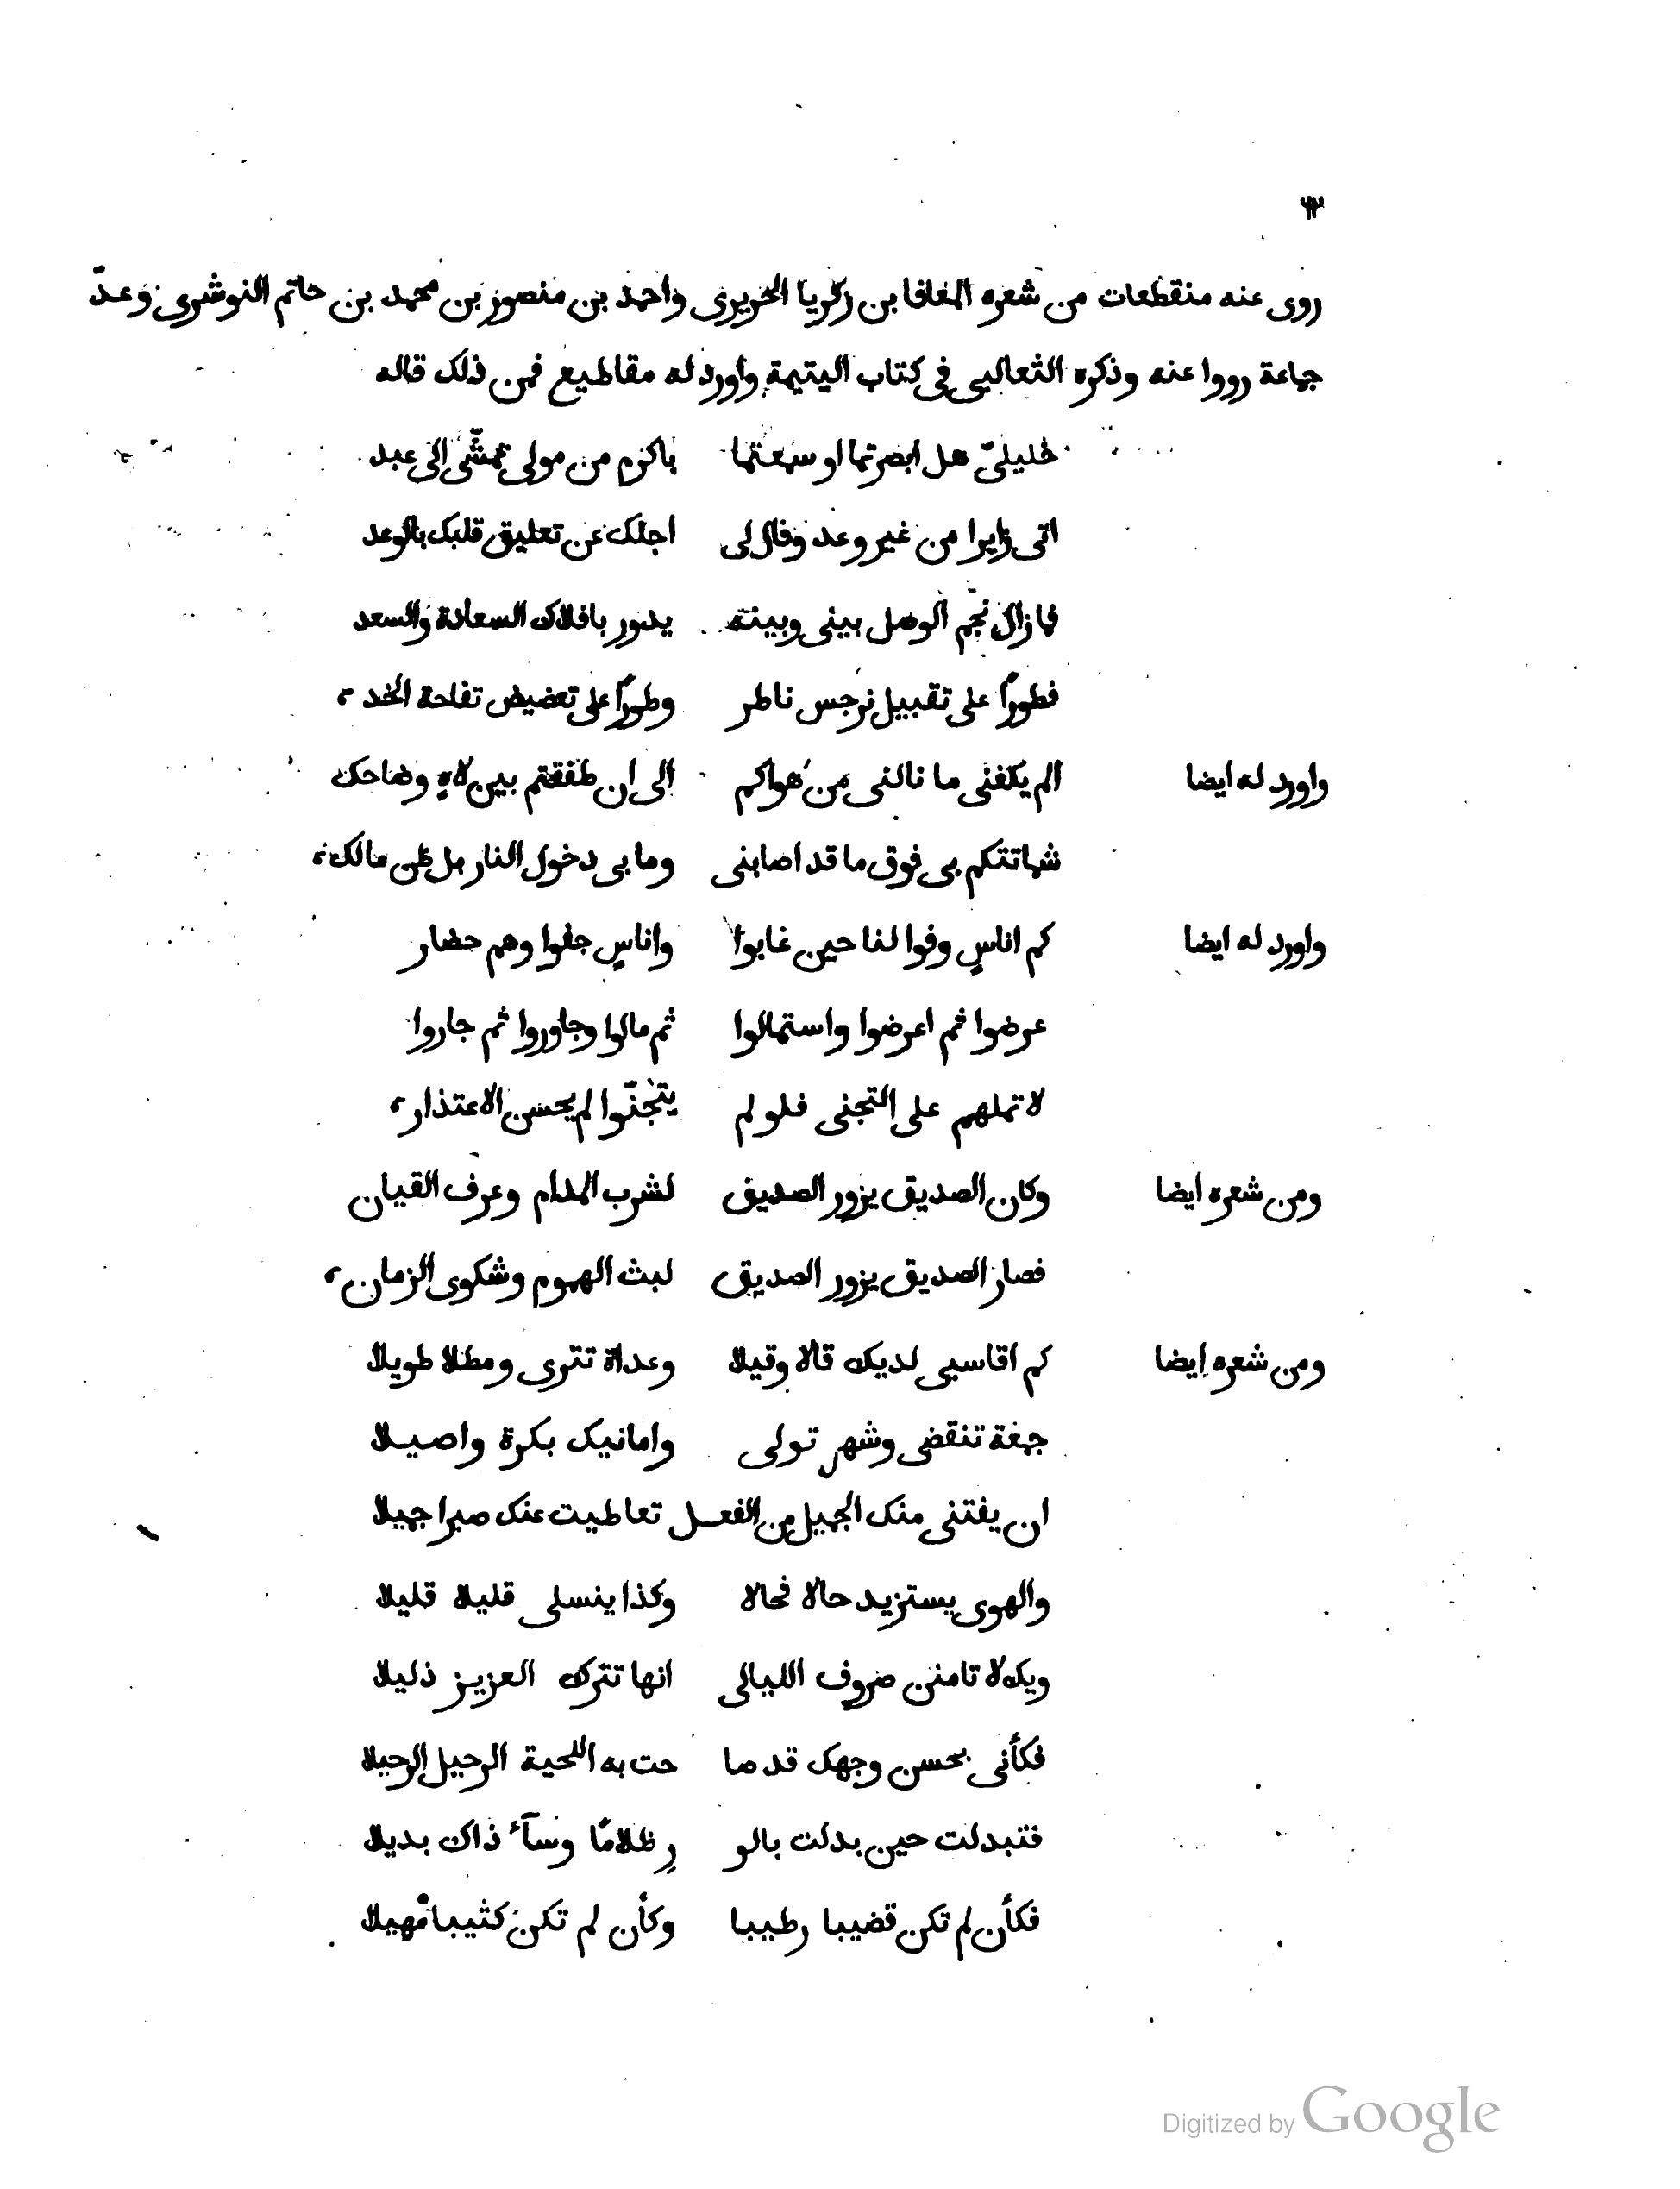 ٣٢
روى عنه منقطعات من شعره المعافا بن زكريا الحريرى واحمد بن منصور بن محمد بن حاتم النوشرى وعدّ
جماعة رووا عنه وذكره الثعالبى فى كتاب اليتيمة واورد له مقاطيع فمن ذلك قاله
خليلىّ هل ابصرتما او سمعتما باكرم من مولى تمشّى الى عبد
اتى زايرا من غير وعد وقال لى اجلك عن تعليق قلبك بالوعد
فما زال نجم الوصل بينى وبينه يدور بافلاك السعادة والسعد
فطورًا على تقبيل نرجس ناطر وطورًا على تعضيض تفاحة الخد
واورد له ايضا الم يكفنى ما نالنى من هواكم الى ان طفقتم بين لاهٍ وضاحك
شماتتكم بى فوق ما قد اصابنى وما بى دخول النار بل طن مالك
واورد له ايضا كم اناسٍ وفوا لنا حين غابوا واناسٍ جفوا وهم حضار
عرضوا ثم اعرضوا واستمالوا ثم مالوا وجاوروا ثم جاروا
لا تملهم على التجنى فلو لم يتجنّوا لم يحسن الاعتذار
ومن شعره ايضا وكان الصديق يزور الصديق لشرب المدام وعرف القيان
فصار الصديق يزور الصديق لبث الهموم وشكوى الزمان
ومن شعره ايضا كم اقاسى لديك قالا وقيلا وعداة تترى ومطلا طويلا
جمعة تنقضى وشهر تولى وامانيك بكرة واصيلا
ان يفتنى منك الجميل من الفعل تعاطيت عنك صبرا جميلا
والهوى يستزيد حالا فحالا وكذا ينسلى قليلا قليلا
ويك لا تامنن صروف الليالى انها تترك العزيز ذليلا
فكأنى بحسن وجهك قد صا حت به اللحية الرحيل الرحيلا
فتبدلت حين بدلت بالو رِ ظلامًا وسآء ذاك بديلا
فكأن لم تكن قضيبا رطيبا وكأن لم تكن كثيبا مهيلا
Digitized by Google